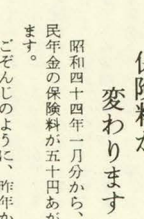 保険料が
変わります
昭和四十四年一月分から、
民年金の保険料が五十円あが
ます。
ごぞんじのように、昨年か